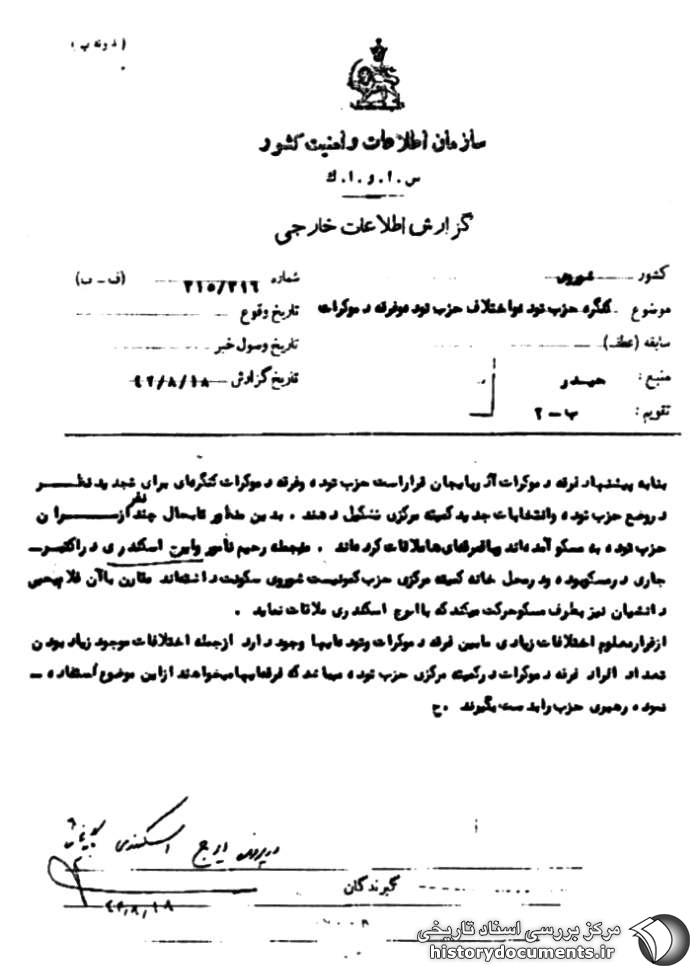 (نمونه پ)
سازمان اطلاعات و امنیت کشور
س . ا . و . ا . ك
گزارش اطلاعات خارجی
کشور شوروی
شماره ۳۱۵/۳۱۶ (ف - ب)
موضوع کنگره حزب توده و اختلاف حزب توده و فرقه دموکرات
تاریخ وقوع
سابقه (عطف)
تاریخ وصول خبر
منبع : حیدر
تاریخ گزارش ۴۲/۸/۱۸
تقویم : ب - ۲
بنابه پیشنهاد فرقه دموکرات آذربایجان قرار است حزب توده و فرقه دموکرات کنگره‌ای برای تجدید نظر
در وضع حزب توده و انتخابات جدید کمیته مرکزی تشکیل دهند . بدین منظور تابحال چند نفر از سران
حزب توده به مسکو آمده‌اند و بافرقه‌ای‌ها ملاقات کرده‌اند . منجمله رحیم نامور و ایرج اسکندری در اکتبر
جاری در مسکو بوده و در محل خانه کمیته مرکزی حزب کمونیست شوروی سکونت داشته‌اند مقارن با آن غلام یحیی
دانشیان نیز بطرف مسکو حرکت میکند که با ایرج اسکندری ملاقات نماید .
از قرار معلوم اختلافات زیادی مابین فرقه دموکرات و توده‌ایها وجود دارد از جمله اختلافات موجود زیاد بودن
تعداد افراد فرقه دموکرات در کمیته مرکزی حزب توده میباشد که فرقه‌ایها میخواهند از این موضوع استفاده -
نموده رهبری حزب را بدست بگیرند . ح
در پرونده ایرج اسکندری
گیرندگان
۴۲/۸/۱۸
مرکز بررسی اسناد تاریخی
historydocuments.ir